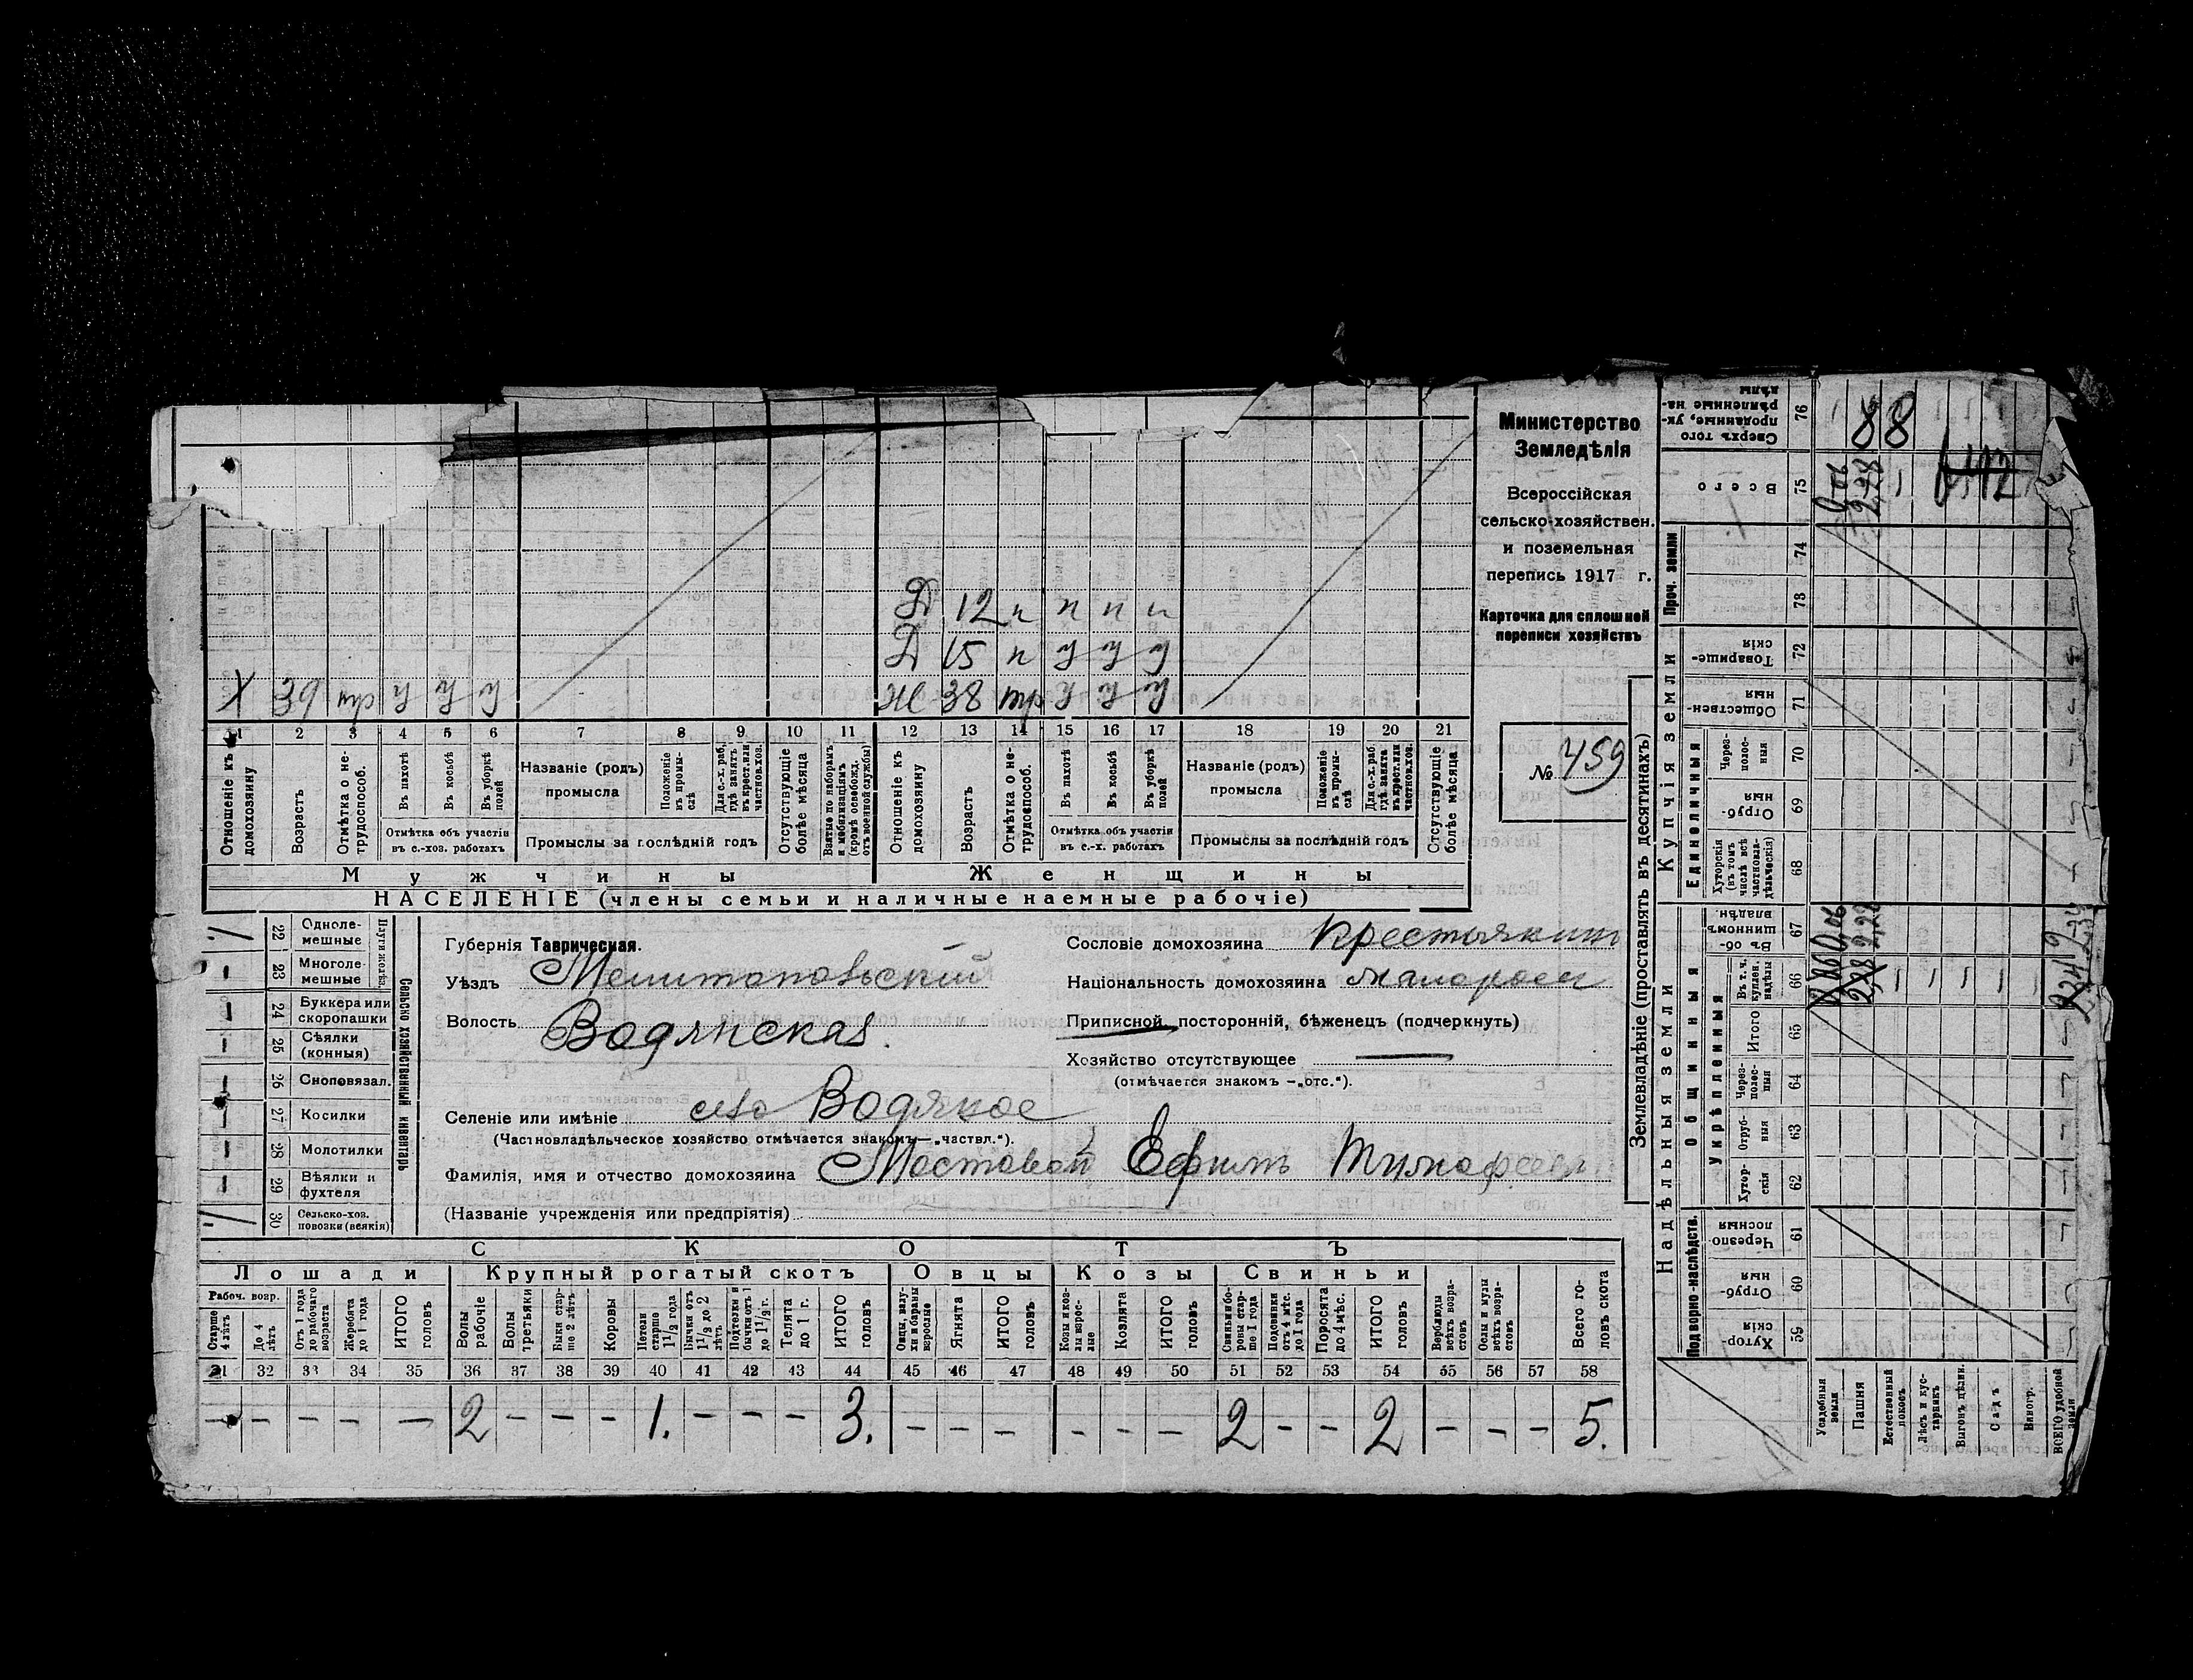 Министерство
Земледѣлія
Всероссійская
сельско-хозяйствен.
и поземельная
перепись 1917 г.
Карточка для сплошной
переписи хозяйствъ
№ 459
Д 12 п п п п
Д 15 п У У У
Х 39 тр У У У
Ж 38 тр У У У
1 2 3 4 5 6 7 8 9 10 11 12 13 14 15 16 17 18 19 20 21
Отношеніе къ домохозяину
Возрастъ
Отмѣтка о нетрудоспособ.
Въ пахотѣ
Въ косьбѣ
Въ уборкѣ полей
Отмѣтка объ участіи въ с.-хоз. работахъ
Названіе (родъ) промысла
Положеніе въ промыслѣ
Для с.-х. раб., гдѣ занятъ въ крест. или частнов. хоз.
Промыслы за послѣдній годъ
Отсутствующіе болѣе мѣсяца
Взятые по наборамъ и мобилизаціямъ (кромѣ освобожд. отъ военной службы)
Отношеніе къ домохозяину
Возрастъ
Отмѣтка о нетрудоспособ.
Въ пахотѣ
Въ косьбѣ
Въ уборкѣ полей
Отмѣтка объ участіи въ с.-х. работахъ
Названіе (родъ) промысла
Положеніе въ промыслѣ
Для с.-х. раб. гдѣ занята въ крест. или частнов. хоз.
Промыслы за послѣдній годъ
Отсутствующіе болѣе мѣсяца
Мужчины Женщины
НАСЕЛЕНІЕ (члены семьи и наличные наемные рабочіе)
22 Однолемешные
23 Многолемешные
24 Буккера или скоропашки
25 Сѣялки (конныя)
26 Сноповязал.
27 Косилки
28 Молотилки
29 Вѣялки и фухтеля
30 Сельско-хоз. повозки (всякія)
Сельско хозяйственный инвентарь
Губернія Таврическая.
Уѣздъ Мелитопольскій
Волость Водянская.
Селеніе или имѣніе село Водяное
(Частновладѣльческое хозяйство отмѣчается знакомъ — „частвл.“).
Фамилія, имя и отчество домохозяина Мостовой Ефимъ Тимофеев.
(Названіе учрежденія или предпріятія)
Сословіе домохозяина Крестьянинъ
Національность домохозяина малоросс
Приписной, посторонній, бѣженец (подчеркнуть)
Хозяйство отсутствующее —
(отмѣчается знакомъ — „отс.“).
СКОТЪ
Лошади Крупный рогатый скотъ Овцы Козы Свиньи
Рабоч. возр.
Старше 4 лѣтъ
До 4 лѣтъ
Отъ 1 года до рабочаго возраста
Жеребята до 1 года
ИТОГО головъ
Волы рабочіе
Волы третьяки
Быки старше 2 лѣтъ
Коровы
Нетели старше 1½ года
Бычки отъ 1½ до 2 лѣтъ
Подтелки и бычки отъ 1 до 1½ г.
Телята до 1 г.
ИТОГО головъ
Овцы, валухи и бараны взрослые
Ягнята
ИТОГО головъ
Козы и козлы взрослые
Козлята
ИТОГО головъ
Свиньи боровы старше 1 года
Подсвинки отъ 4 мѣс. до 1 года
Поросята до 4 мѣс.
ИТОГО головъ
Верблюды всѣхъ возрастовъ
Ослы и мулы всѣхъ возрастовъ
Всего головъ скота
31 32 33 34 35 36 37 38 39 40 41 42 43 44 45 46 47 48 49 50 51 52 53 54 55 56 57 58
— — — — — 2 — — — 1. — — — 3. — — — — — — 2 — — 2 — — — 5.
Землевладѣніе (проставлять въ десятинахъ)
Надѣльныя земли
Купчія земли
Подворно-наслѣдств.
Общинныя
Укрѣпленныя
Единоличныя
Проч. земли
59 Хуторскія
60 Отрубныя
61 Черезполосныя
62 Хуторскія
63 Отрубныя
64 Черезполосныя
65 Итого
66 Въ т. ч. куплен. надѣлы
67 Въ общинномъ владѣн.
68 Хуторскія (въ томъ числѣ всѣ частновладѣльческія)
69 Отрубныя
70 Черезполосныя
71 Общественныя
72 Товарищескія
73
74
75 Всего
76 Сверхъ того проданные, укрѣпленные надѣлы
Усадебная земля
Пашня
Естественный покосъ
Лѣсъ и кустарникъ
Выгонъ цѣлин.
Садъ
Виногр.
ВСЕГО удобной земли
88
0,06
2,28